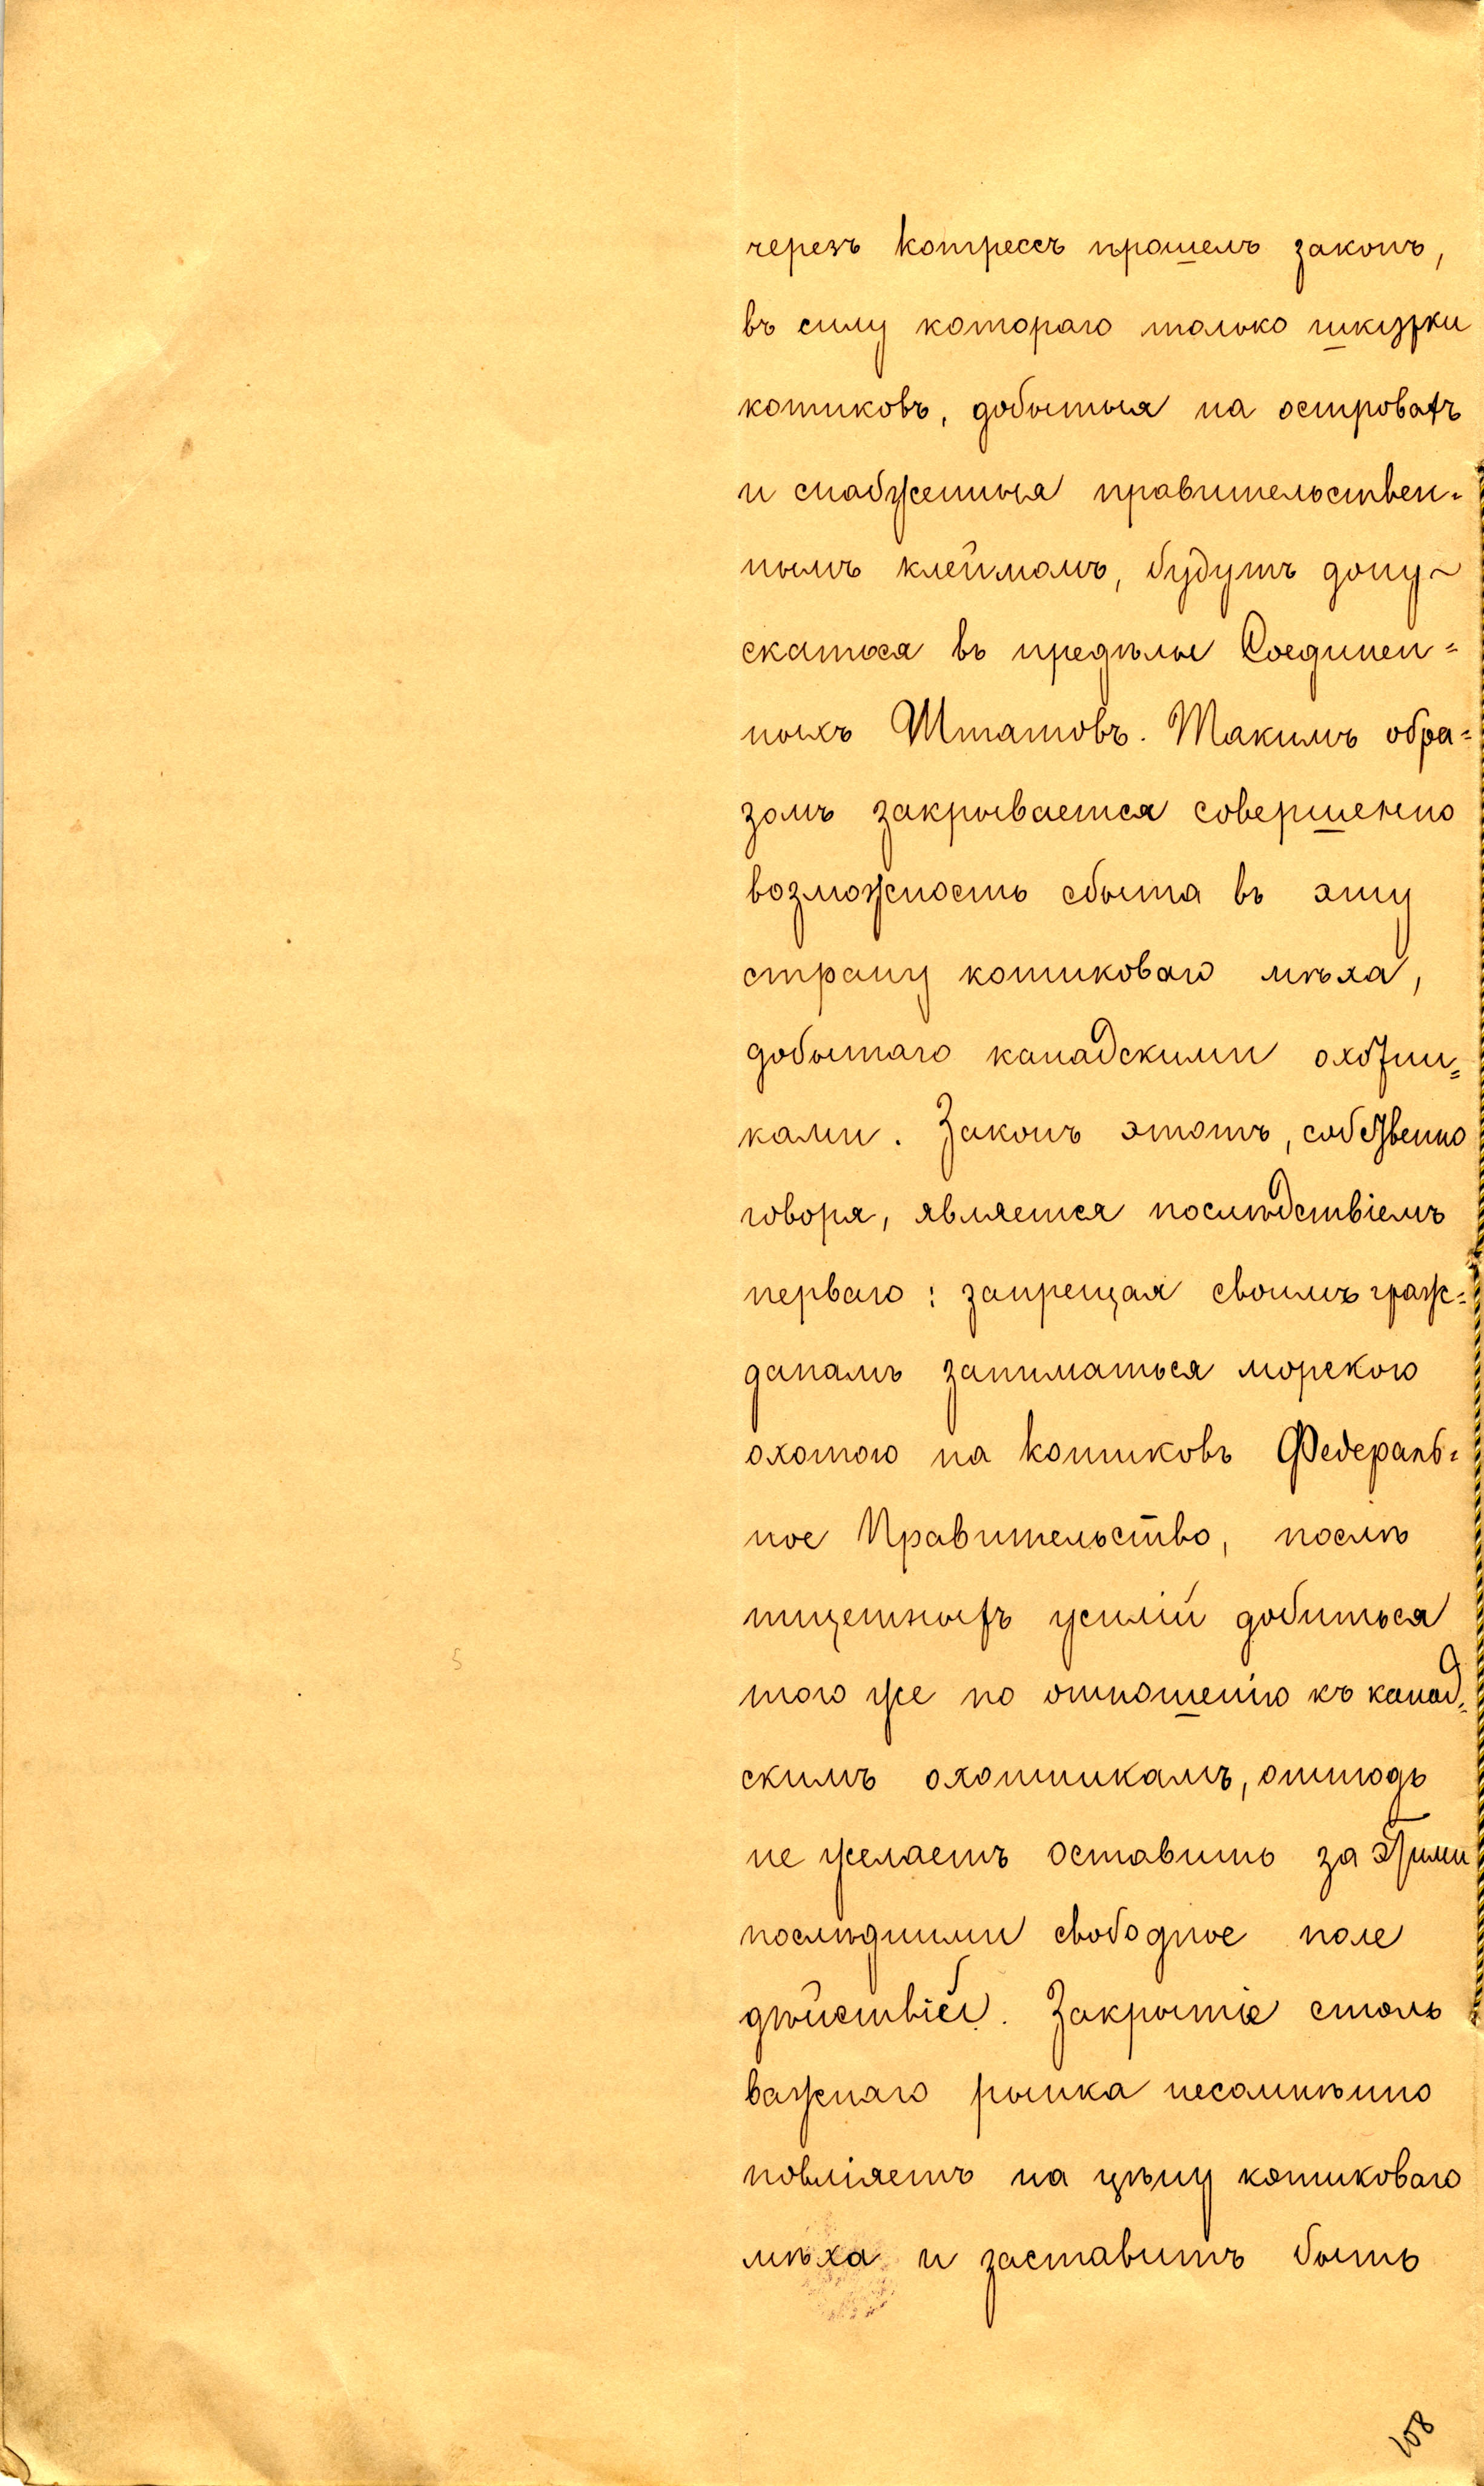 черезъ конгрессъ прошелъ законъ,
въ силу котораго только шкурки
котиковъ, добытыя на островахъ
и снабженныя правительствен=
нымъ клеймомъ, будутъ допу~
скаться въ предѣлы Соединен=
ныхъ Штатовъ. Такимъ обра=
зомъ закрывается совершенно
возможность сбыта въ эту
страну котиковаго мѣха,
добытаго канадскими охотни=
ками. Законъ этотъ, собственно
говоря, является послѣдствіемъ
перваго: запрещая своимъ граж=
данамъ заниматься морскою
охотою на котиковъ Федераль=
ное Правительство, послѣ
тщетныхъ усилій добиться
того же по отношенію къ канад=
скимъ охотникамъ, отнюдь
не желаетъ оставить за этими
послѣдними свободное поле
дѣйствій. Закрытіе столь
важнаго рынка несомнѣнно
повліяетъ на цѣну котиковаго
мѣха и заставитъ быть
108